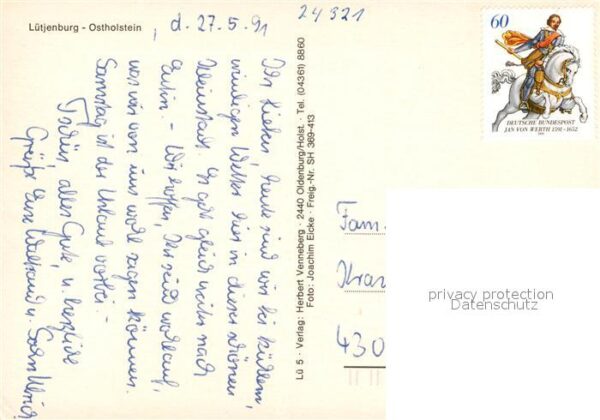 Lütjenburg - Ostholstein
, d. 27.5.91
24321
Ihr Lieben, heute sind wir bei kühlem,
windigen Wetter hier in dieser schönen
Kleinstadt. Es geht gleich weiter nach
Eutin. - Wir hoffen, Ihr seid wohlauf,
was wir von uns wohl sagen können.
Samstag ist der Urlaub vorbei. -
alles Gute, u. herzliche
Grüße Eure Waltraud u.
Lü 5 · Verlag: Herbert Venneberg · 2440 Oldenburg/Holst. · Tel. (04361) 8860
Foto: Joachim Eicke · Freig.-Nr. SH 369-413
60
DEUTSCHE BUNDESPOST
JAN VON WERTH 1591-1652
Fam.
Kra
430
privacy protection
Datenschutz